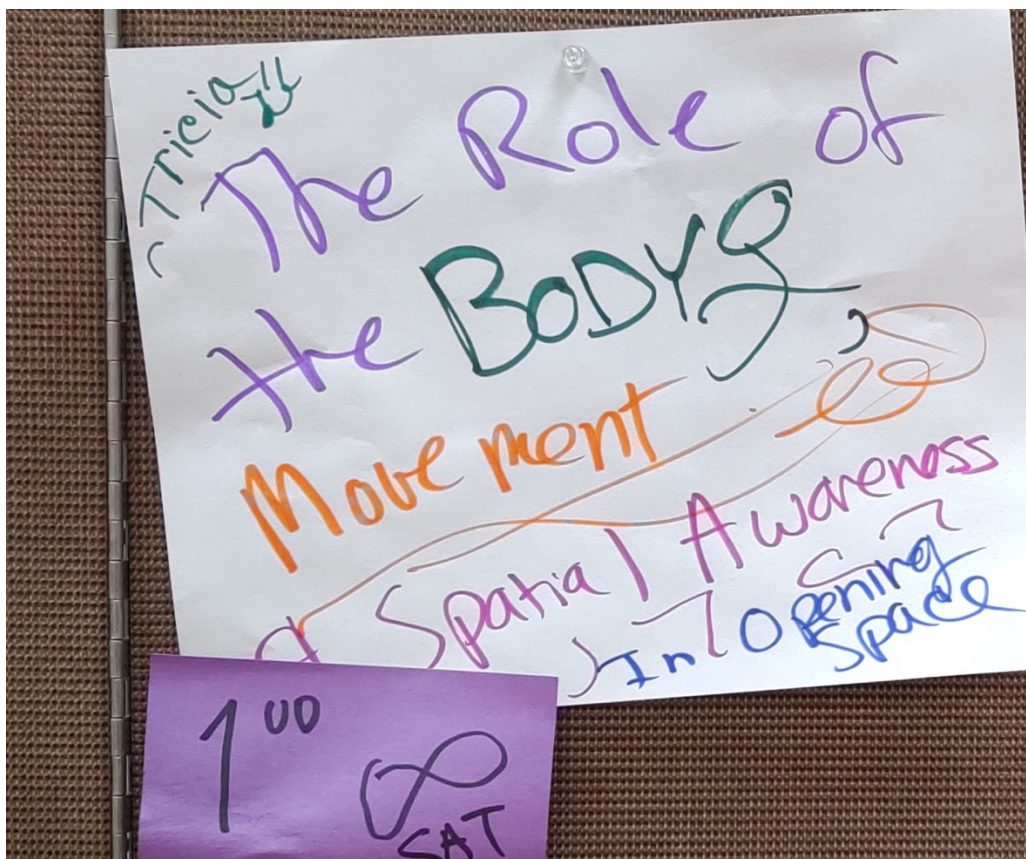 Tricia
The Role of
the BODY,
Movement
& Spatial Awareness
In Opening
Space
1:00
∞
SAT